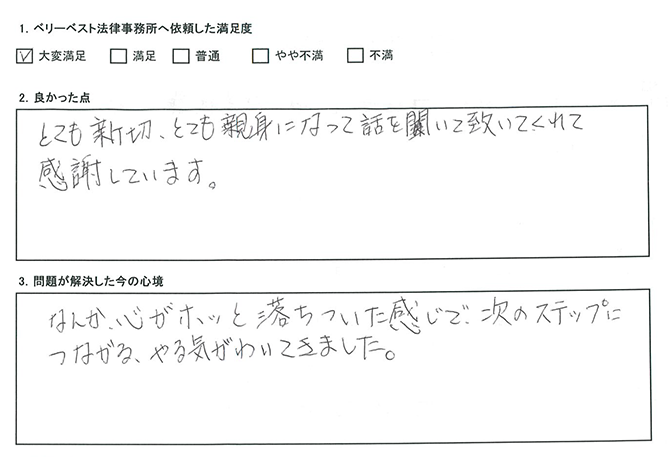 1. ベリーベスト法律事務所へ依頼した満足度
☑ 大変満足 □ 満足 □ 普通 □ やや不満 □ 不満
2. 良かった点
とても新切、とても親身になって話を聞いて致いてくれて
感謝しています。
3. 問題が解決した今の心境
なんか、心がホッと落ちついた感じで、次のステップに
つながる、やる気がわいてきました。